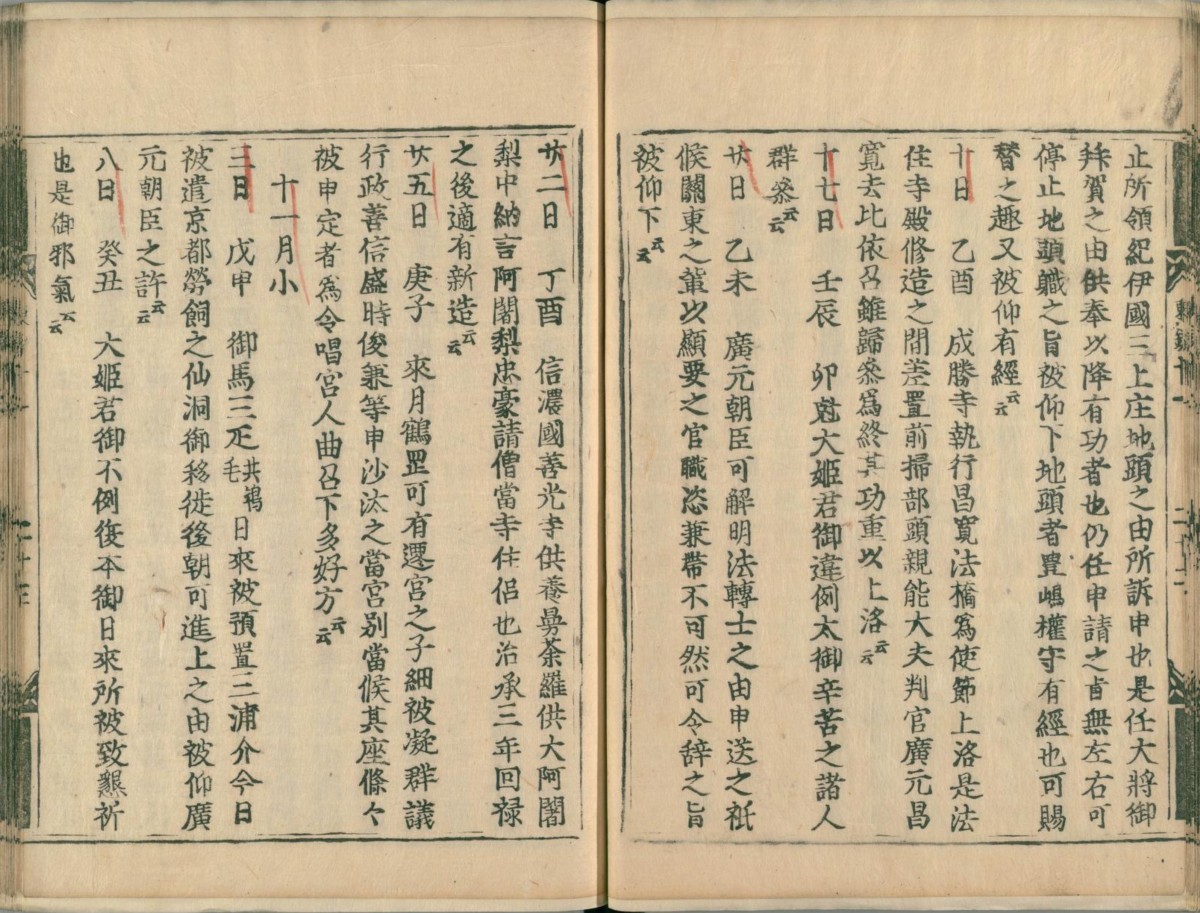 止所領紀伊國三上庄地頭之由所訴申也是任大將御
拜賀之由供奉以降有功者也仍任申請之旨無左右可
停止地頭職之旨被仰下地頭者豊嶋權守有經也可賜
替之趣又被仰有經云云
十日　乙酉　成勝寺執行昌寛法橋爲使節上洛是法
住寺殿修造之間差置前掃部頭親能大夫判官廣元昌
寛去比依召雖歸參爲終其功重以上洛云云
十七日　壬辰　卯尅大姬君御違例太御辛苦之諸人
群參云云
廿日　乙未　廣元朝臣可解明法轉士之由申送之祇
候關東之輩以顯要之官職恣兼帶不可然可令辞之旨
被仰下云云
廿二日　丁酉　信濃國善光寺供養曼荼羅供大阿闍
梨中納言阿闍梨忠豪請僧當寺住侶也治承三年回禄
之後適有新造云云
廿五日　庚子　來月鶴罡可有遷宮之子細被凝群議
行政善信盛時俊兼等申沙汰之當宮別當候其座條々
被申定者爲令唱宮人曲召下多好方云云
十一月小
三日　戊申　御馬三疋共鴾毛日來被預置三浦介今日
被遣京都勞飼之仙洞御移徙後朝可進上之由被仰廣
元朝臣之許云云
八日　癸丑　大姬君御不例復本御日來所被致懇祈
也是御邪氣云云